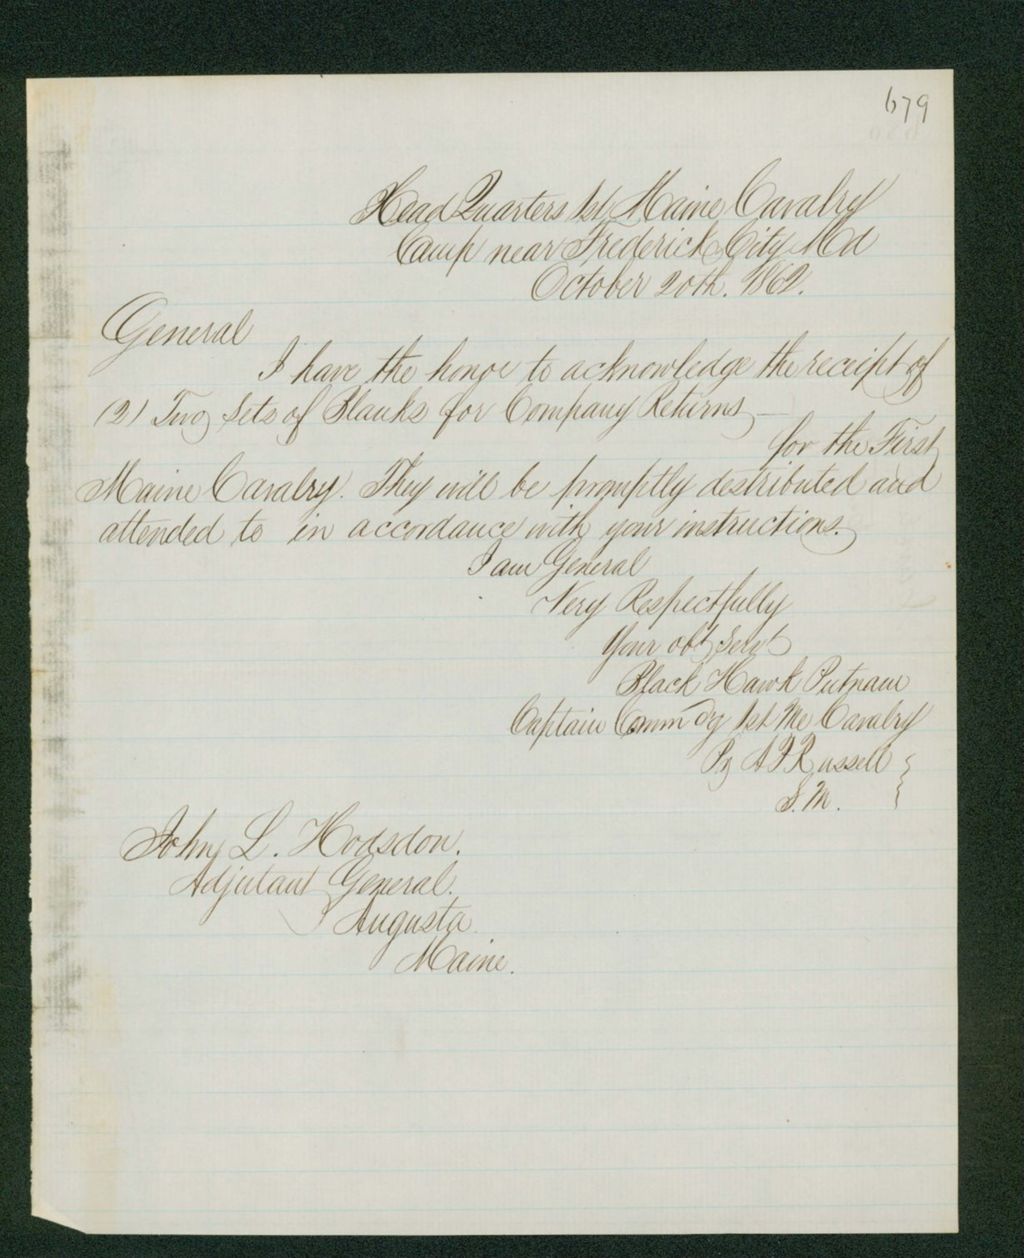 679
Head Quarters 1st Maine Cavalry
Camp near Frederick City Md
October 20th. 1862.
General
I have the honor to acknowledge the receipt of
(2) Two Sets of Blanks for Company Returns —
for the First
Maine Cavalry. They will be promptly destributed and
attended to in accordance with your instructions.
I am General
Very Respectfully
Your obt Servt
Black Hawk Putnam
Captain Comm'dg 1st Me Cavalry
By A P Russell
S. M.
John L. Hodsdon.
Adjutant General.
Augusta
Maine.